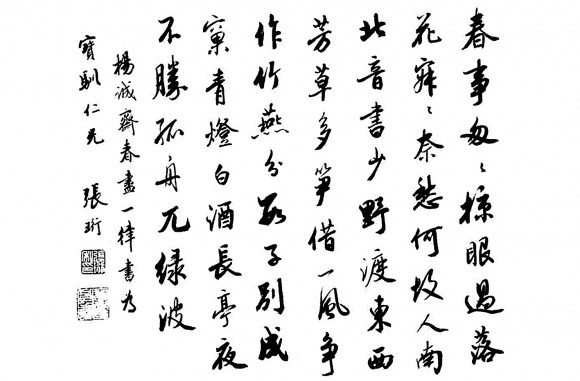 春事匆〻掠眼過落
花寂〻奈愁何故人南
北音書少野渡東西
芳草多笋借一風争
作竹燕分數子別成
窠青燈白酒長亭夜
不勝孤舟兀绿波
楊誠齋春盡一律書為
寶馴仁兄 張珩